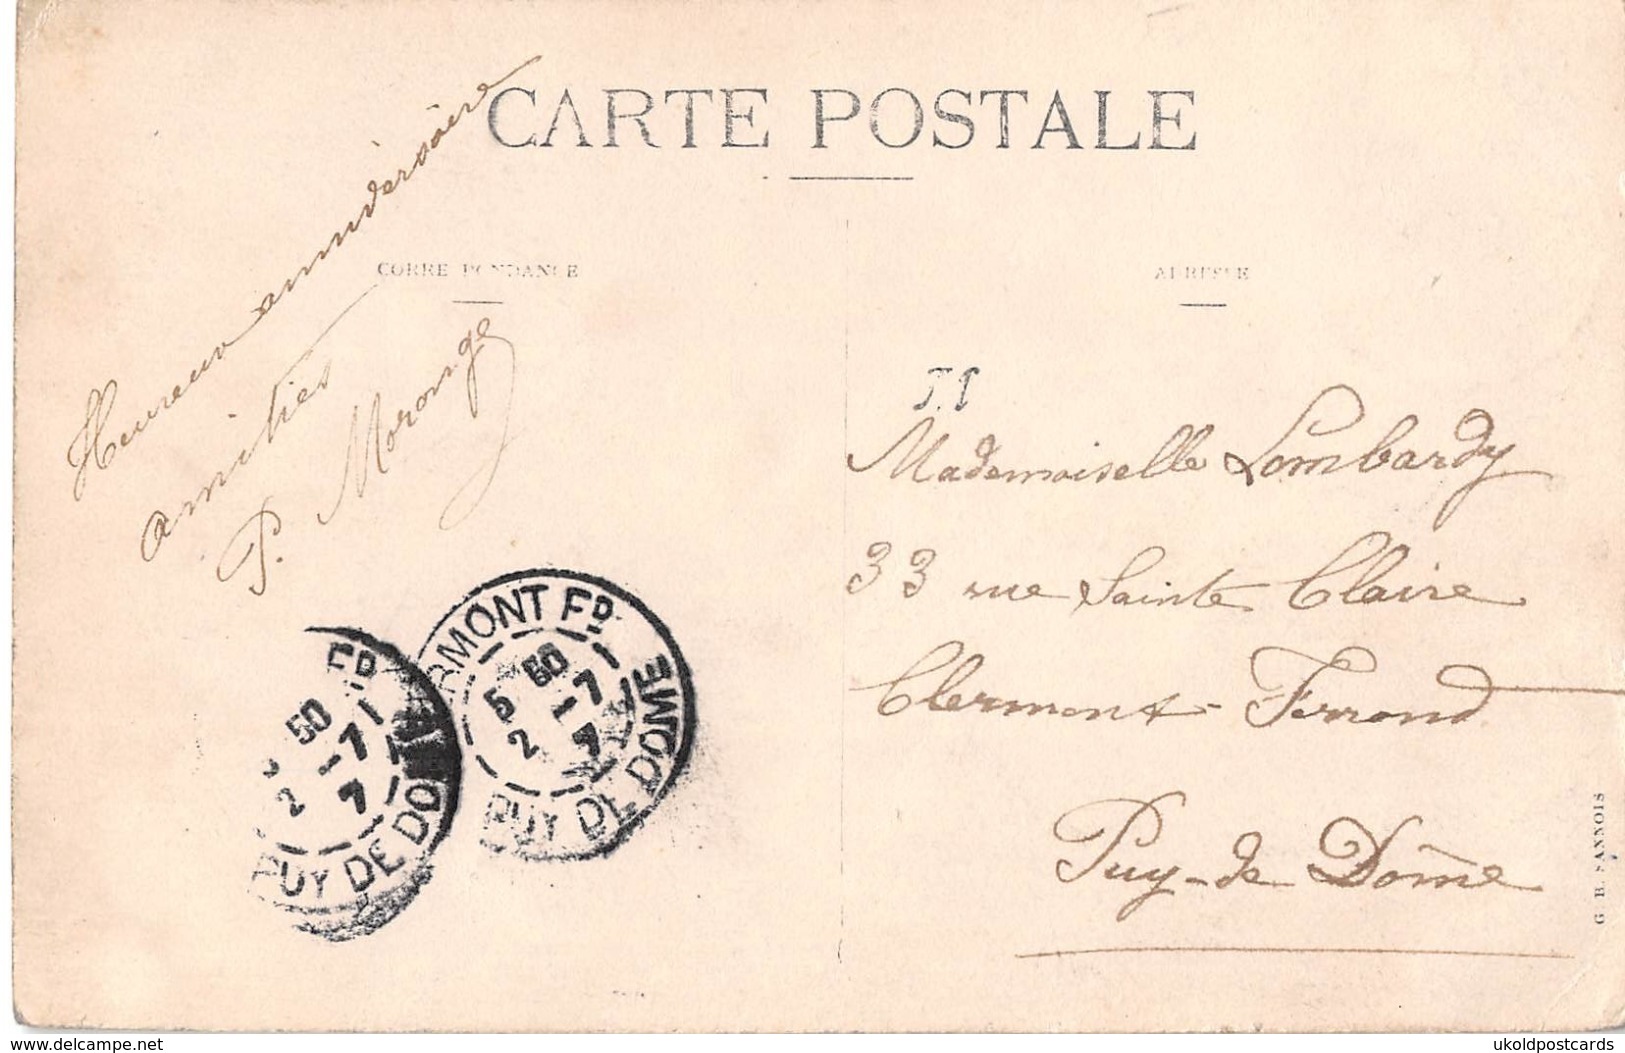 CARTE POSTALE
CORRESPONDANCE
ADRESSE
Heureux anniversaire
amitiés
P. Moronge
Mademoiselle Lombardy
33 rue Sainte Claire
Clermont-Ferrand
Puy-de Dôme
RMONT FD
5 50
2 -7
7
PUY DE DOME
FD
50
2 -7
7
PUY DE DOME
G. B. SANNOIS
delcampe.net
ukoldpostcards